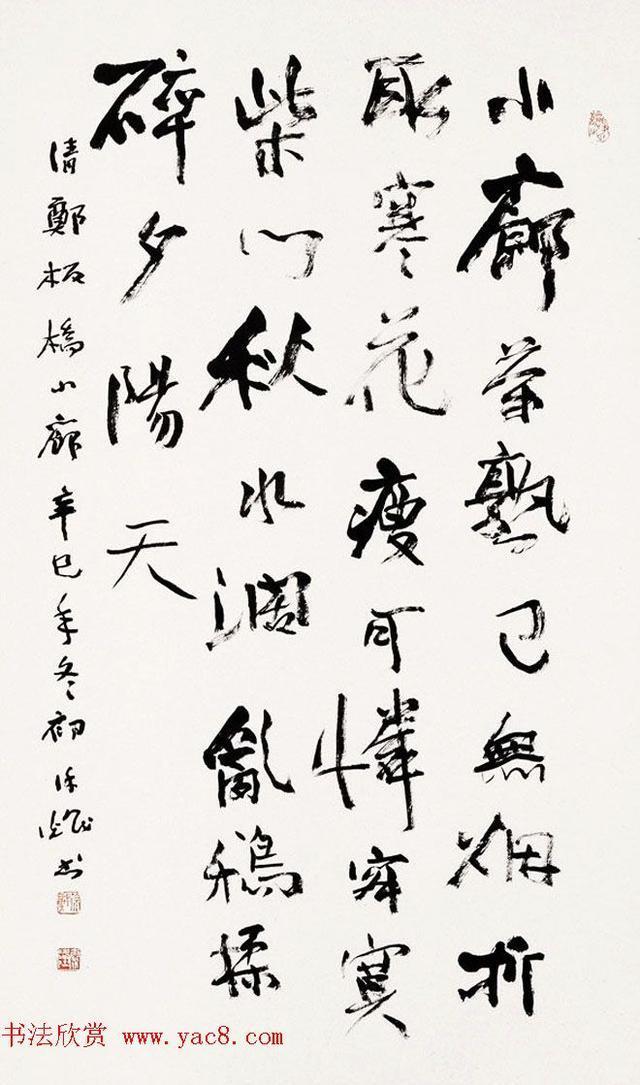 小廊茶熟已無烟折
取寒花瘦可憐寂寞
柴門秋水濶亂鴉揉
碎夕陽天
清鄭板橋小廊辛巳年冬初
书法欣赏 www.yac8.com